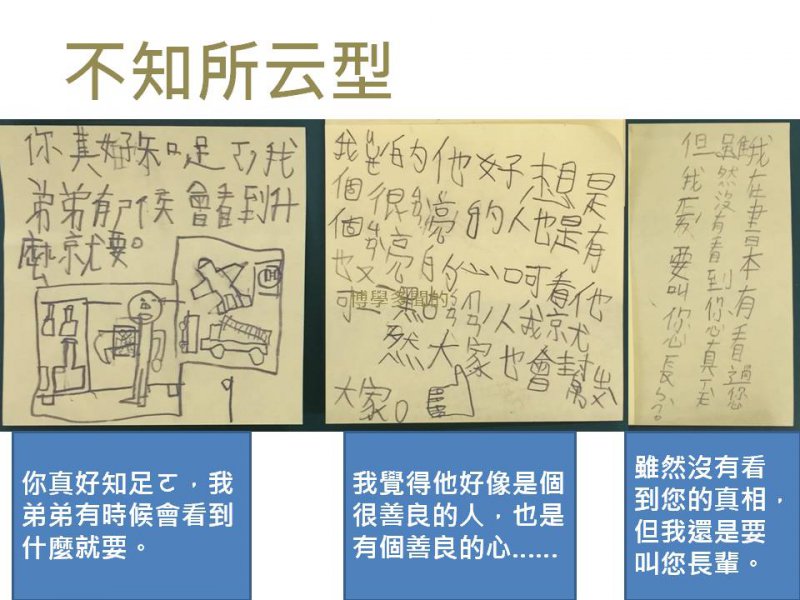 不知所云型
你真好知足ㄛ我
弟弟有ㄕ候會看到什
麼就要。
我的他好想是
個很亮的人也是有
個亮的心可看他
博學多聞的
人我就
然大家也會幫
大家。
我在書本有看過您
雖然沒有看到您真
但我要叫您長
你真好知足ㄛ，我
弟弟有時候會看到
什麼就要。
我覺得他好像是個
很善良的人，也是
有個善良的心......
雖然沒有看
到您的真相，
但我還是要
叫您長輩。